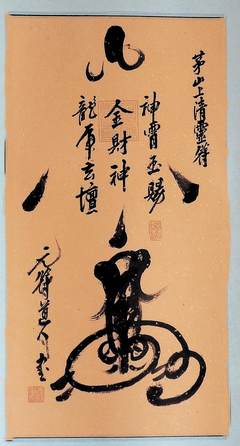 茅山上清靈符
神霄玉賜
金財神
龍虎玄壇
元符道人書